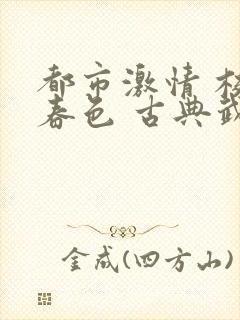 都市激情 校
春色 古典武
金成(四方山)